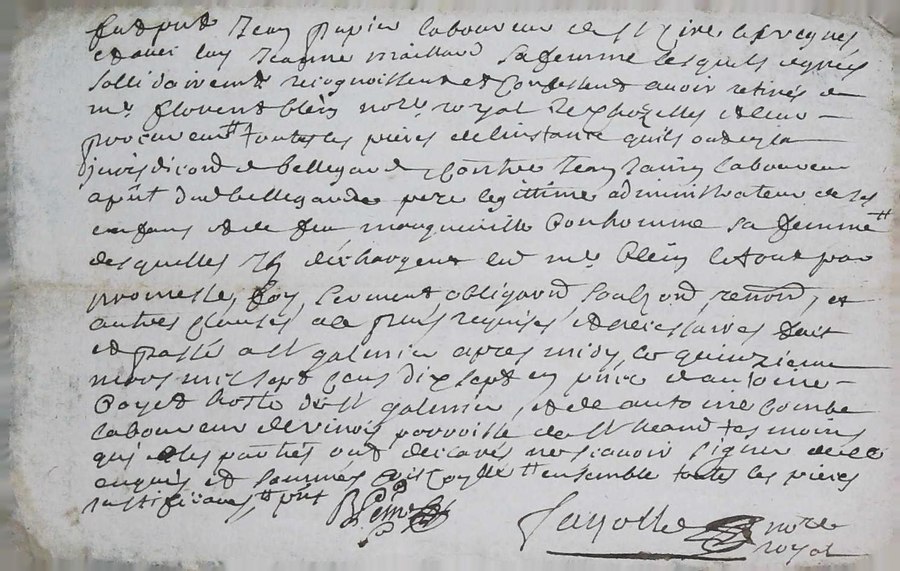 fut pnt Jean papier laboureur de St Cire les vignes
et avec luy Jeanne maillard sa femme lesquels de grés
sollidairement recognoissent et confessent avoir retirés de
me florent blein nore royal et leur
procureur toutes les pieces de linstance quils ont en la
jurisdicōn de bellegarde contre Jean laboureur
dud bellegarde pere legittime administrateur de ses
enfans et de feu marguerite bonhomme sa femme
desquelles Ils déchargent led me blein le tout par
promesse, foy, serment obligaōn renonōn, et
autres clauses a ce plus requises et nécessaires fait
et passé a St galmier apres midy, le quinzieme
mars mil sept cens dix sept en pnce dantoine
Coyet hoste de St galmier, et de antoine Combe
laboureur de parroisse de St heand tesmoins
qui et les parties ont déclarés ne scavoir signer de ce
enquis et sommés ensemble toutes les pieces
justificatives
Blein
nore
royal